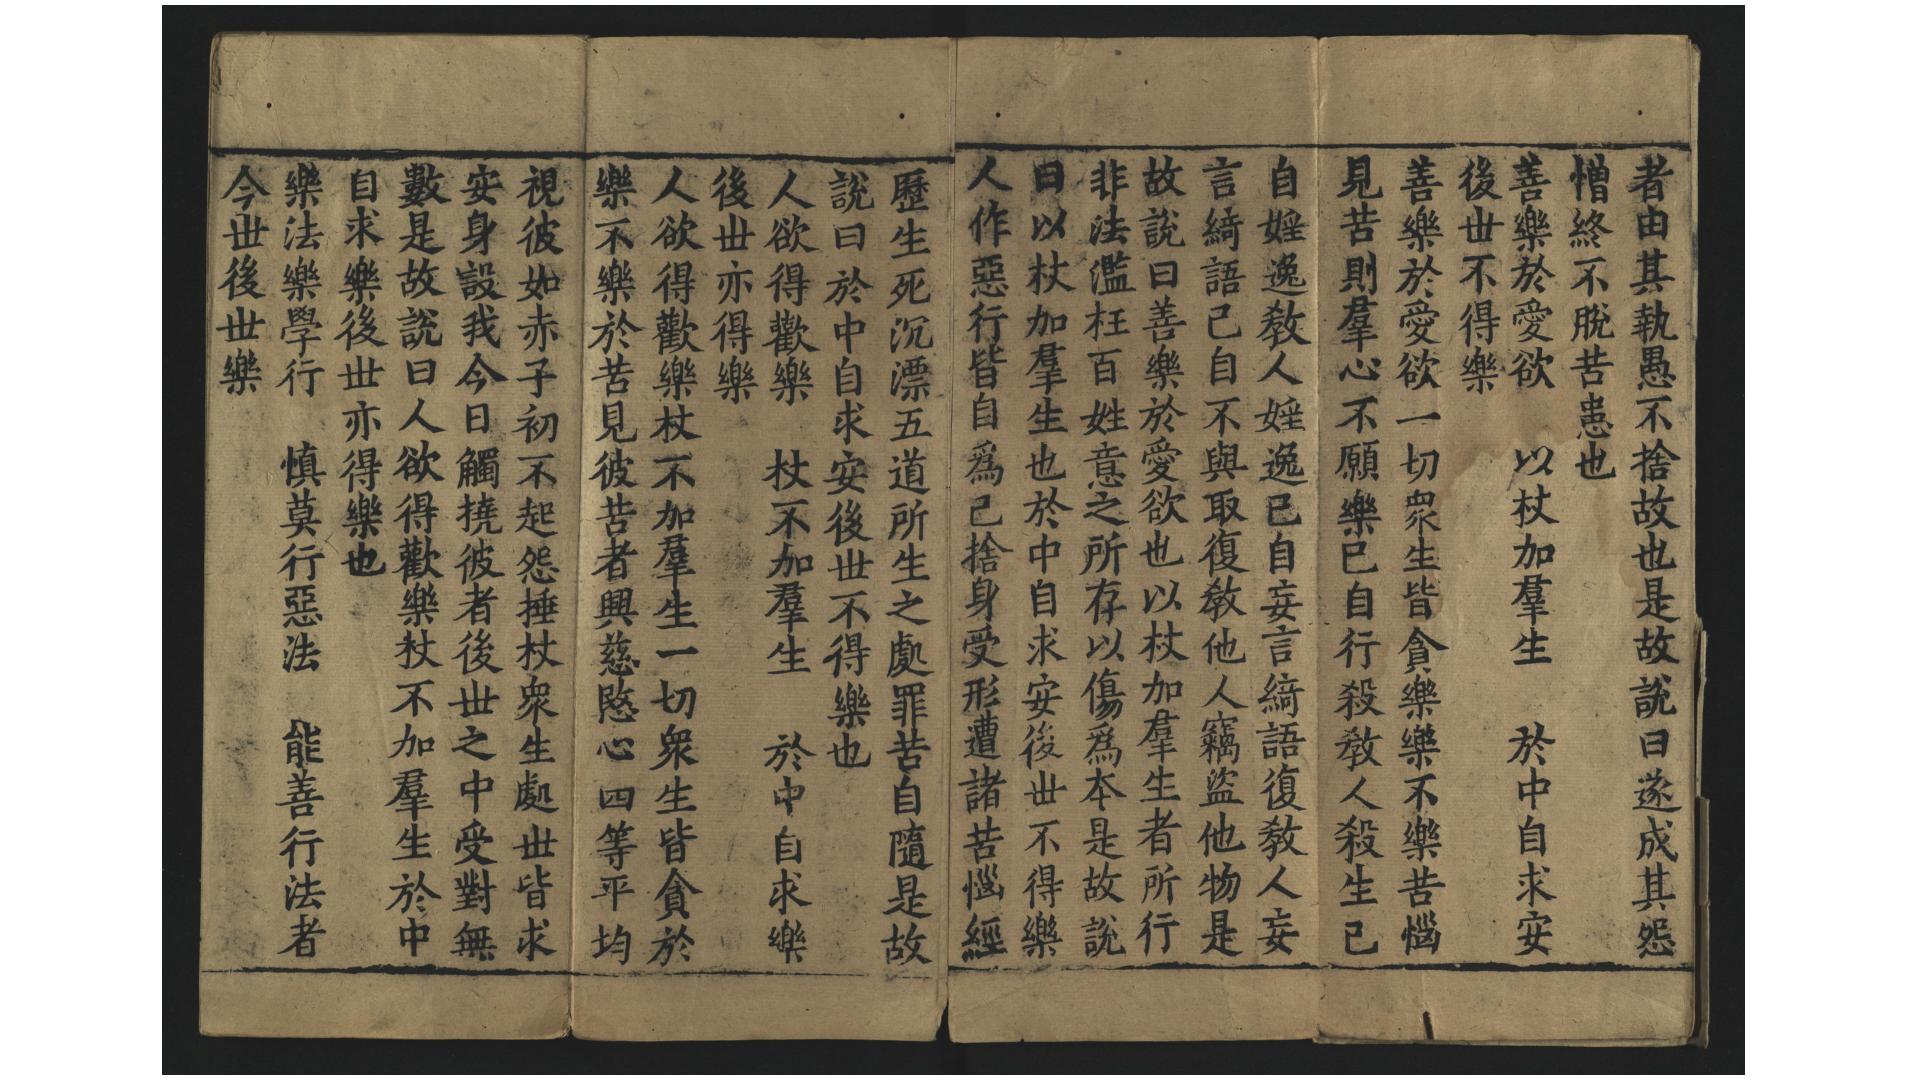 者由其執愚不捨故也是故說曰遂成其怨
憎終不脫苦患也
善樂於愛欲　以杖加羣生　於中自求安
後世不得樂
善樂於愛欲一切眾生皆貪樂樂不樂苦惱
見苦則羣心不願樂已自行殺教人殺生己
自婬逸教人婬逸已自妄言綺語復教人妄
言綺語己自不與取復教他人竊盜他物是
故說曰善樂於愛欲也以杖加羣生者所行
非法濫枉百姓意之所存以傷為本是故說
曰以杖加羣生也於中自求安後世不得樂
人作惡行皆自為己捨身受形遭諸苦惱經
歷生死沉漂五道所生之處罪苦自隨是故
說曰於中自求安後世不得樂也
人欲得歡樂　杖不加羣生　於中自求樂
後世亦得樂
人欲得歡樂杖不加羣生一切眾生皆貪於
樂不樂於苦見彼苦者興慈愍心四等平均
視彼如赤子初不起怨捶杖眾生處世皆求
安身設我今日觸撓彼者後世之中受對無
數是故說曰人欲得歡樂杖不加羣生於中
自求樂後世亦得樂也
樂法樂學行　慎莫行惡法　能善行法者
今世後世樂